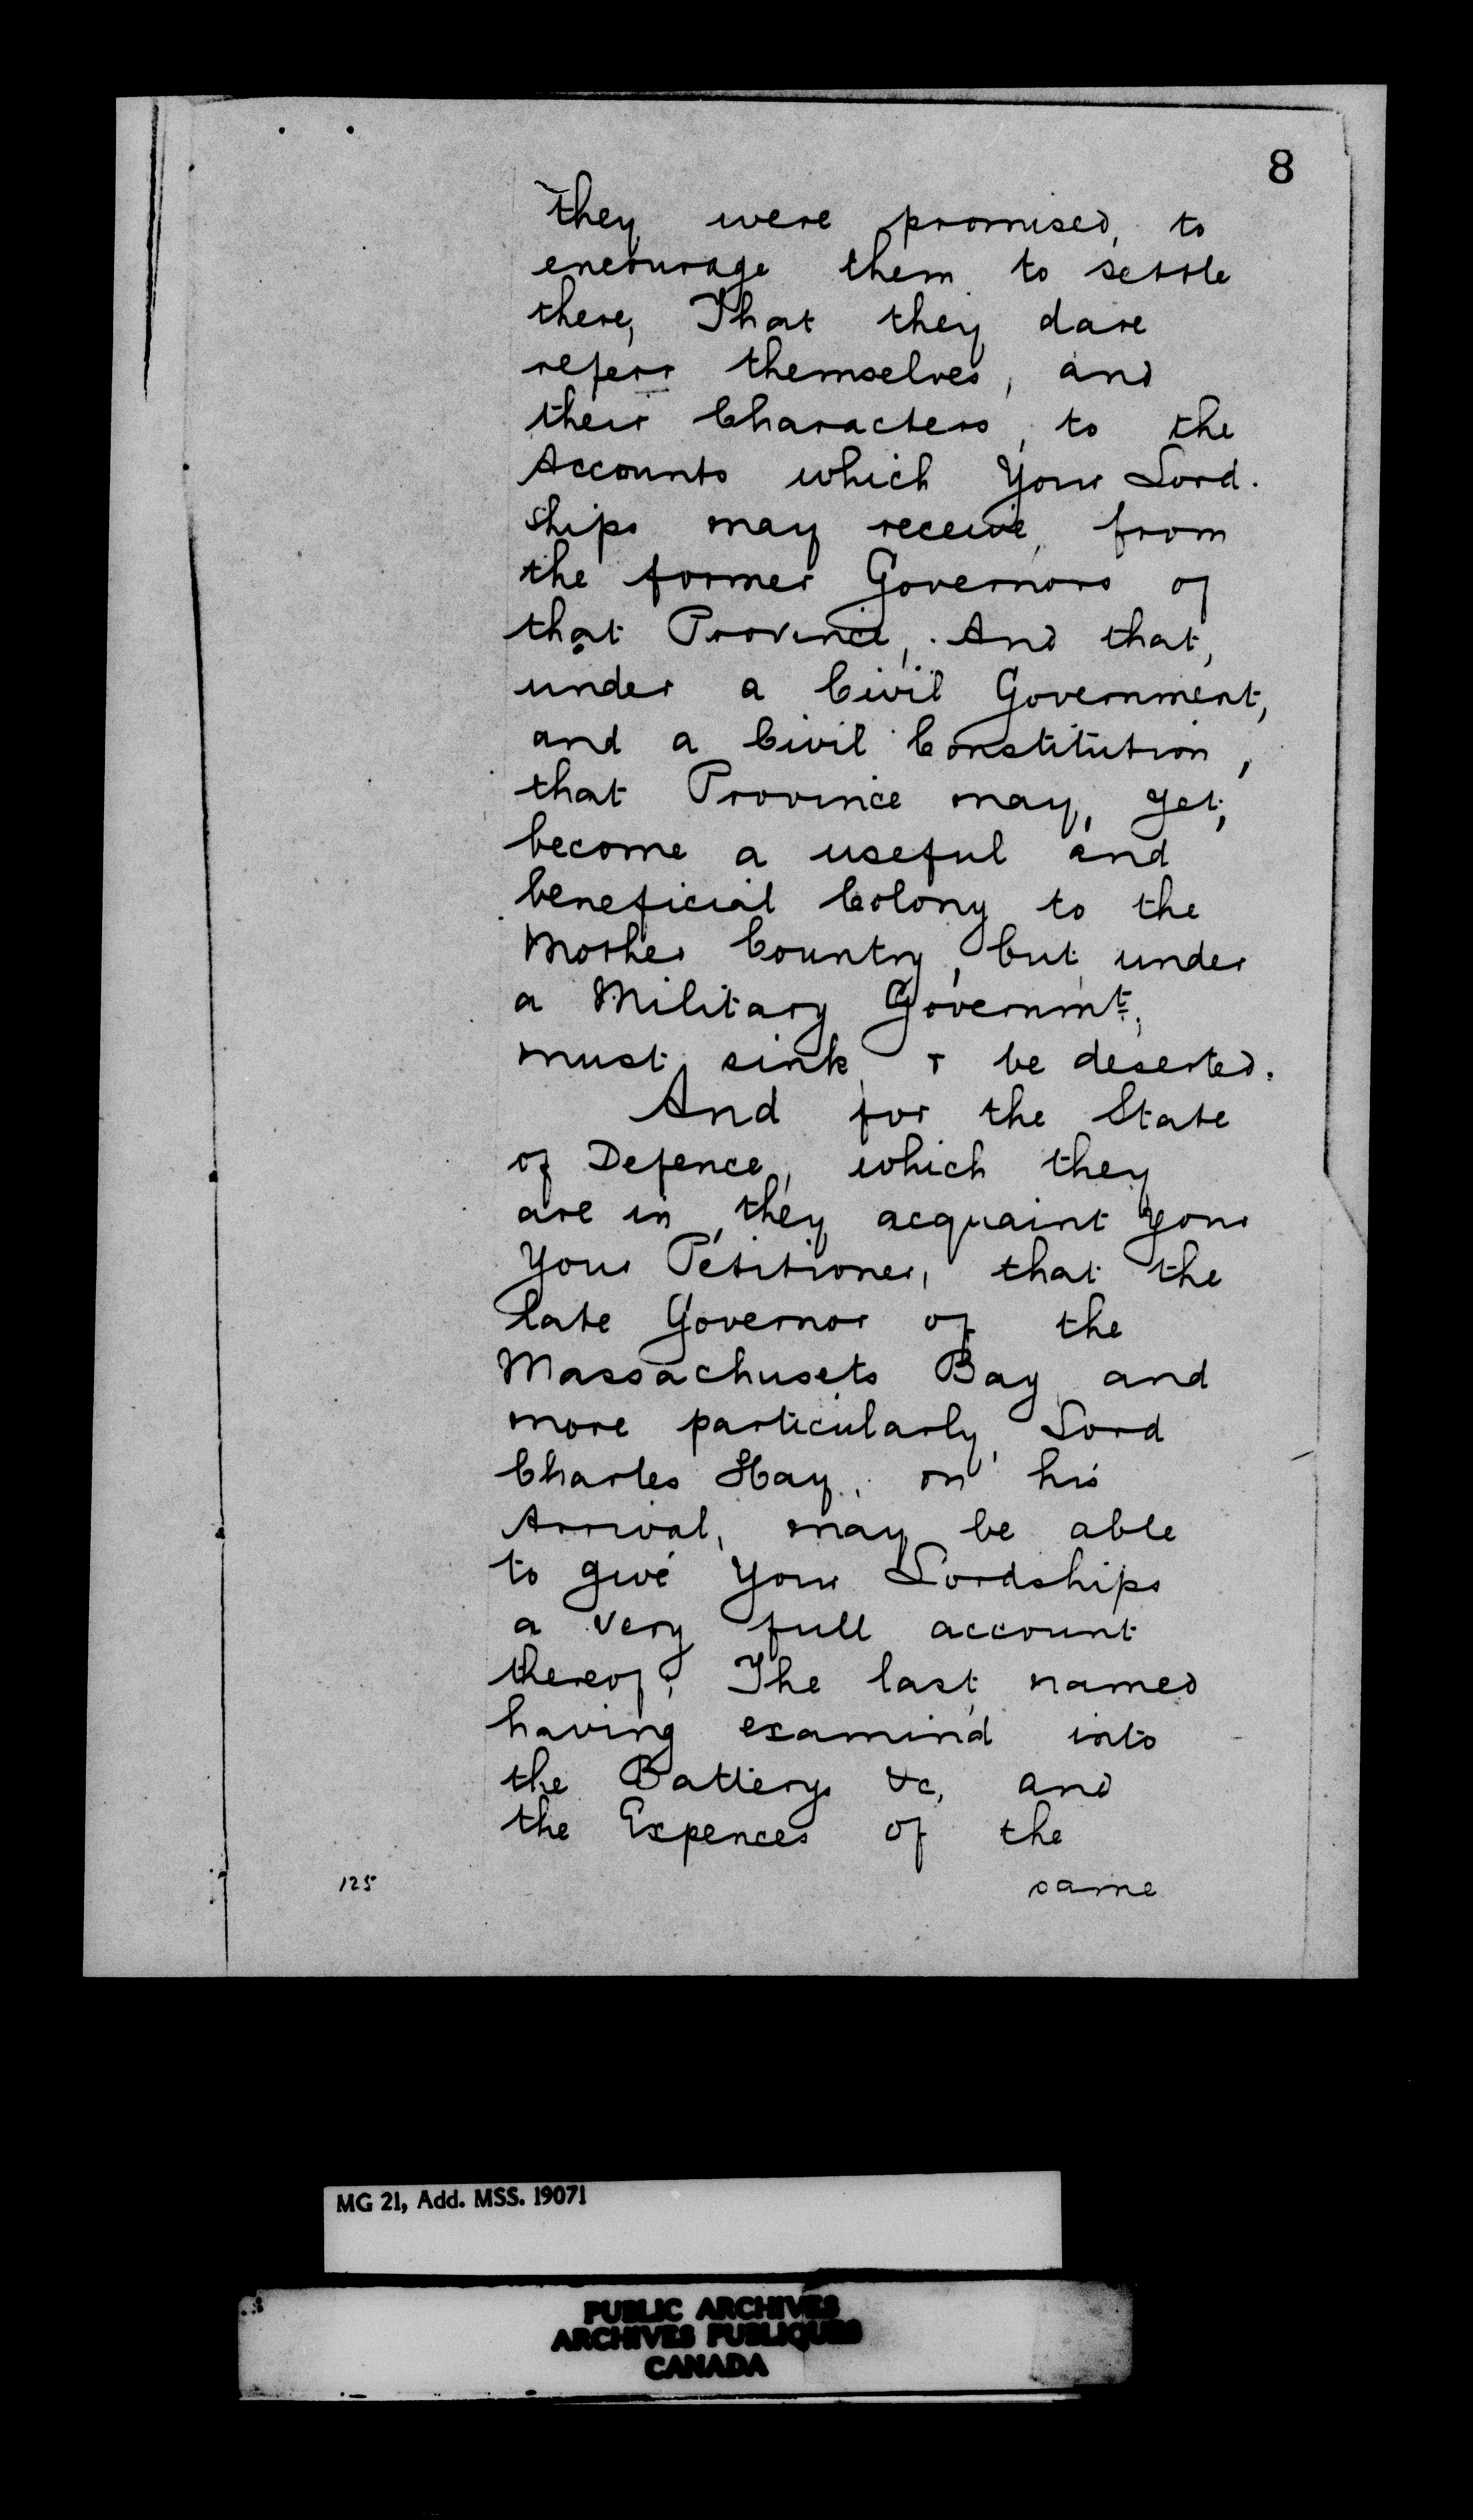 8
they were promised, to
encourage them to settle
there, That they dare
referr themselves, and
their Characters, to the
Accounts which Your Lord-
ships may receive, from
the former Governors of
that Province, And that,
under a Civil Government,
and a Civil Constitution,
that Province may, yet,
become a useful and
beneficial Colony to the
Mother Country, but under
a Military Governmt,
must sink & be deserted.
And for the State
of Defence, which they
are in, they acquaint your
Your Petitioner, that the
late Governor of the
Massachusets Bay and
more particularly, Lord
Charles Hay, on his
Arrival, may be able
to give Your Lordships
a very full account
thereof, The last named
having examind into
the Batterys &c, and
the Expences of the
same
125
MG 21, Add. MSS. 19071
PUBLIC ARCHIVES
ARCHIVES PUBLIQUES
CANADA